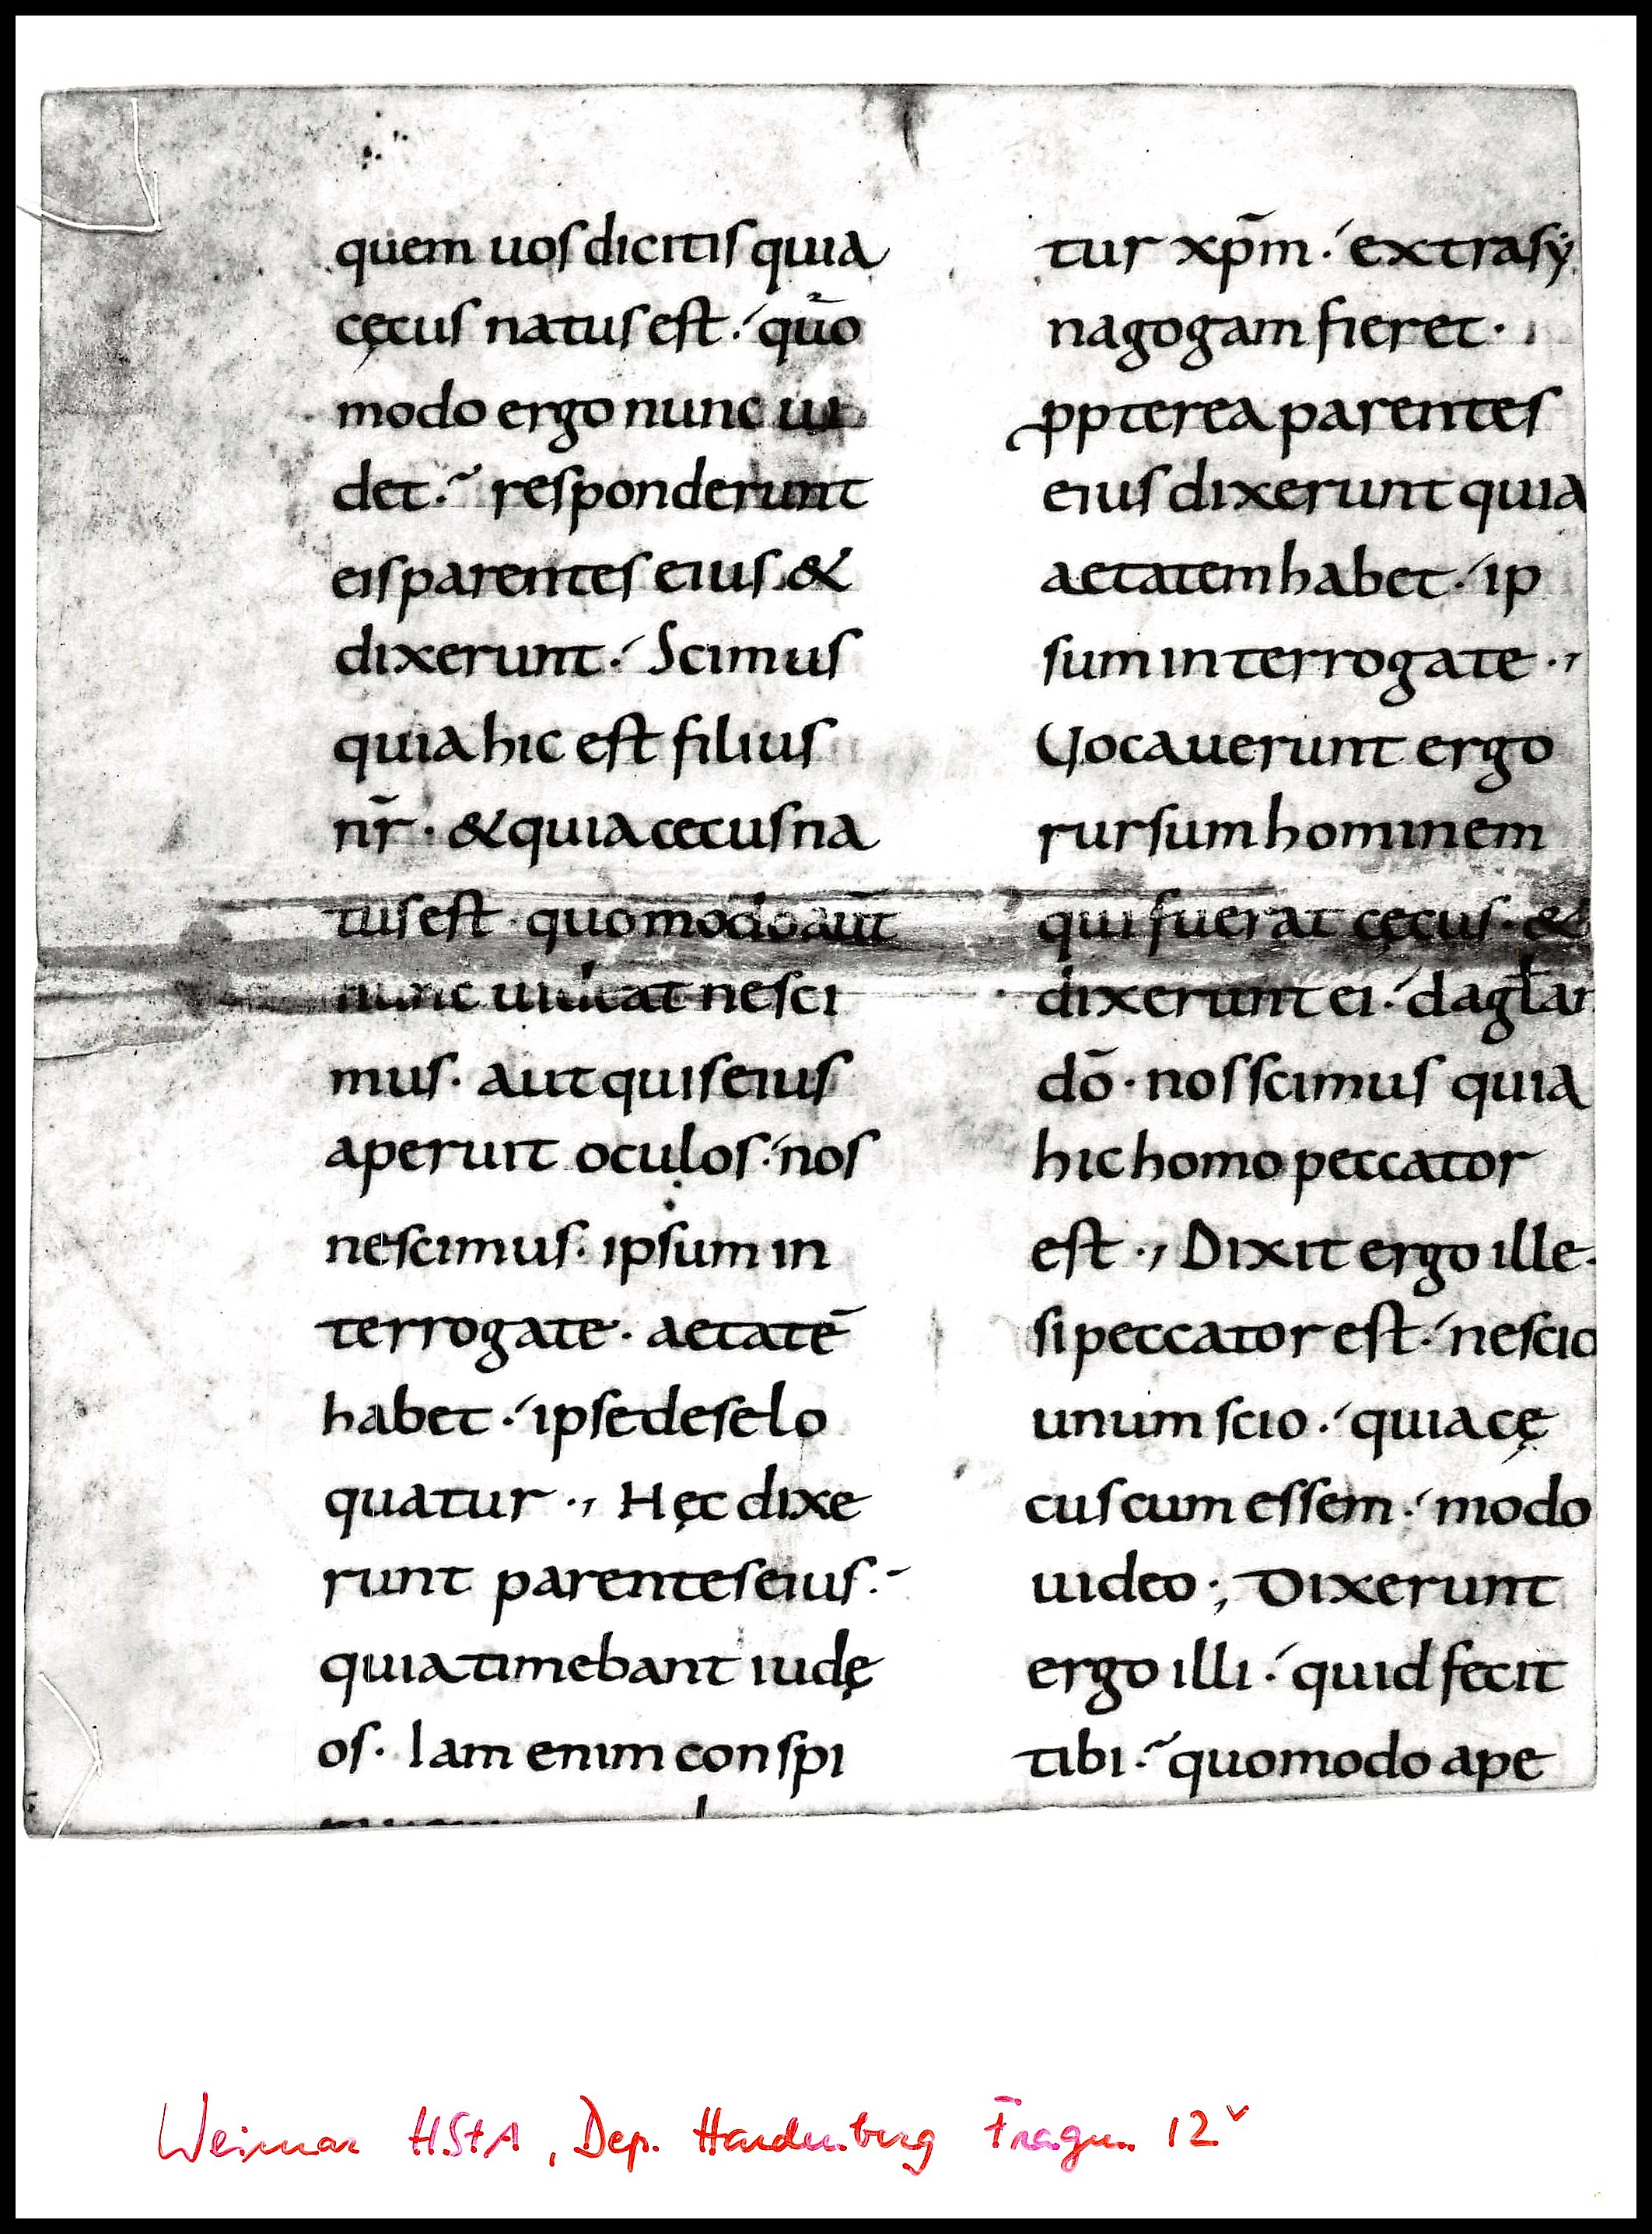 quem uos dicitis quia
cęcus natus est· quō
modo ergo nunc ui
det· responderunt
eis parentes eius &
dixerunt· Scimus
quia hic est filius
nr̄· & quia cecus na
tus est· quomodo aut̄
nunc uideat nesci
mus· aut quis eius
aperuit oculos· nos
nescimus· ipsum in
terrogate· aetatē
habet· ipse de se lo
quatur·, Hęc dixe
runt parentes eius·
quia timebant iudę
os· Iam enim conspi
tur xp̄m· extra sy
nagogam fieret·
ꝓpterea parentes
eius dixerunt quia
aetatem habet· ip
sum interrogate·,
Uocauerunt ergo
rursum hominem
qui fuerat cęcus· &
dixerunt ei· da gl̄am
dō· nos scimus quia
hic homo peccator
est·, Dixit ergo ille·
si peccator est· nescio
unum scio· quia cę
cus cum essem· modo
uideo·, Dixerunt
ergo illi· quid fecit
tibi· quomodo ape
Weimar HStA, Dep. Hardenberg Fragm. 12ᵛ